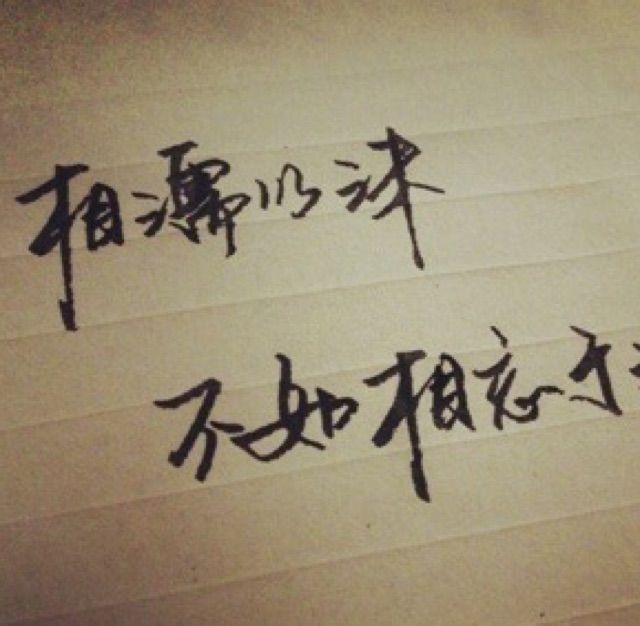 相濡以沫
不如相忘于